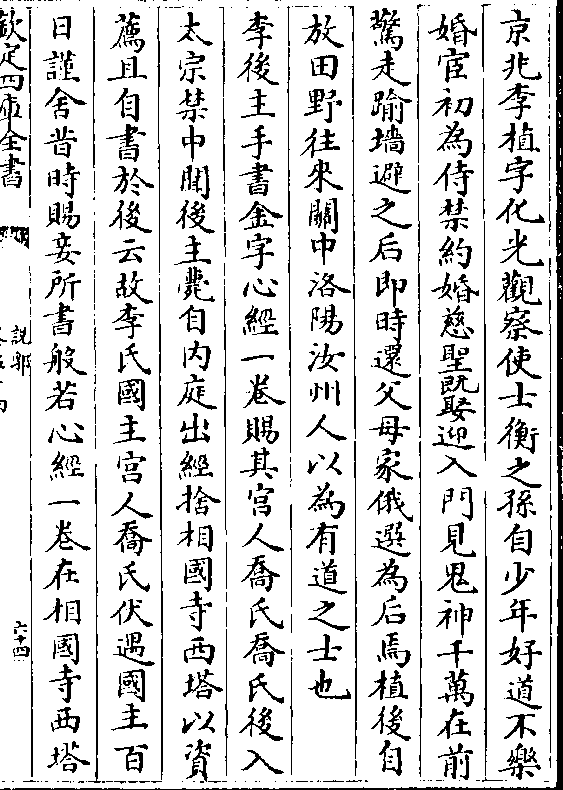 京兆李植字化光觀察使士衡之孫自少年好道不樂
婚宦初為侍禁約婚慈聖既娶迎入門見鬼神千萬在前
驚走踰墻避之后即時還父母家俄選為后焉植後自
放田野往來關中洛陽汝州人以為有道之士也
李後主手書金字心經一卷賜其宫人喬氏喬氏後入
太宗禁中聞後主薨自内庭出經捨相國寺西塔以資
薦且自書於後云故李氏國主宫人喬氏伏遇國主百
日謹舍昔時賜妾所書般若心經一卷在相國寺西塔
欽定四庫全書
說郛
六十四